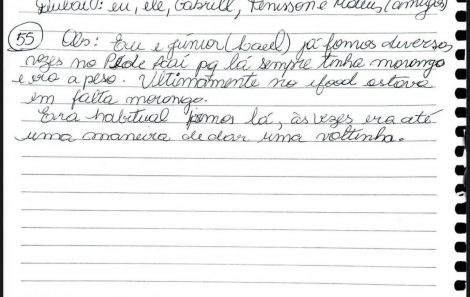 eu, ele, Gabrill, Tenisson e Mateus (amigos)
(55) Obs: Eu e júnior (bael) já fomos diversas
vezes no Pede Açaí pq lá sempre tinha morango
e era a peso. Ultimamente no ifood estava
em falta morango.
Era habitual irmos lá, às vezes era até
uma maneira de dar uma voltinha.